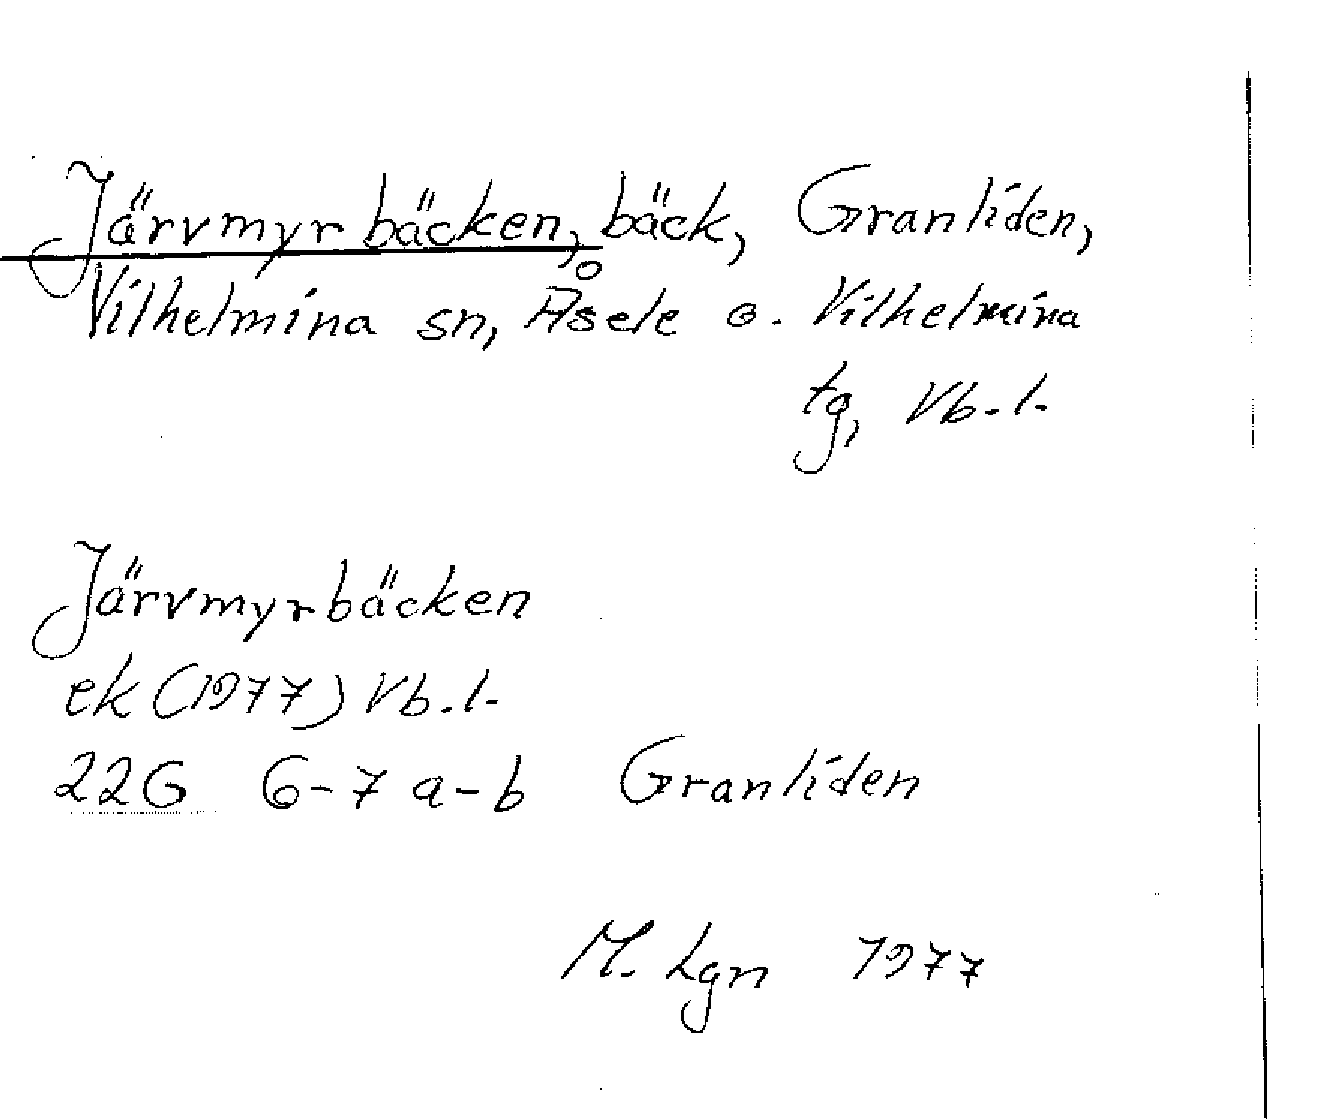 Järvmyrbäcken, bäck, Granliden,
Vilhelmina sn, Åsele o. Vilhelmina
tg, Vb. l.
Järvmyrbäcken
ek (1977) Vb. l.
22G 6-7 a-b Granliden
M. Lgn 1977